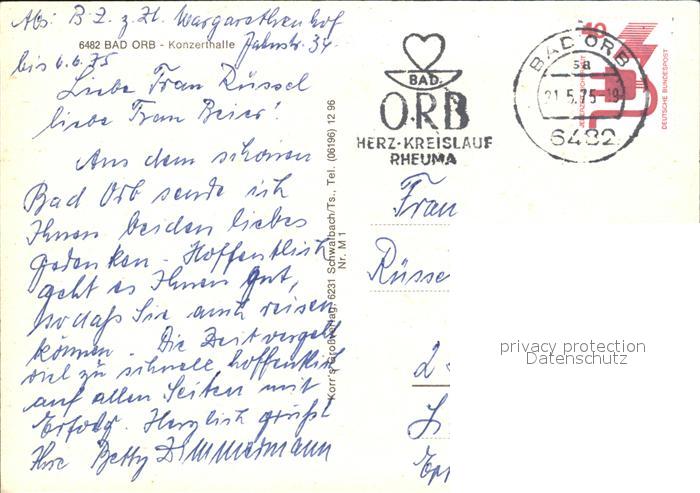 Abs: B. Z. z. Zt. Margarethenhof
6482 BAD ORB - Konzerthalle Jahnstr. 34.
bis 6.6.75
Liebe Frau Rüssel
liebe Frau Beier!
Aus dem schönen
Bad Orb sende ich
Ihnen beiden liebes
Gedenken. Hoffentlich
geht es Ihnen gut,
sodaß Sie auch reisen
können. Die Zeit vergeht
viel zu schnell, hoffentlich
auf allen Seiten mit
Erfolg. Herzlich grüßt
Ihre Betty Zimmermann
Korr's Großverlag, 6231 Schwalbach/Ts., Tel. (06196) 12 96
Nr. M 1
BAD
ORB
HERZ-KREISLAUF
RHEUMA
BAD ORB
sa
31.5.75-19
6482
40
DEUTSCHE BUNDESPOST
Frau
Rüsse
2
privacy protection
Datenschutz